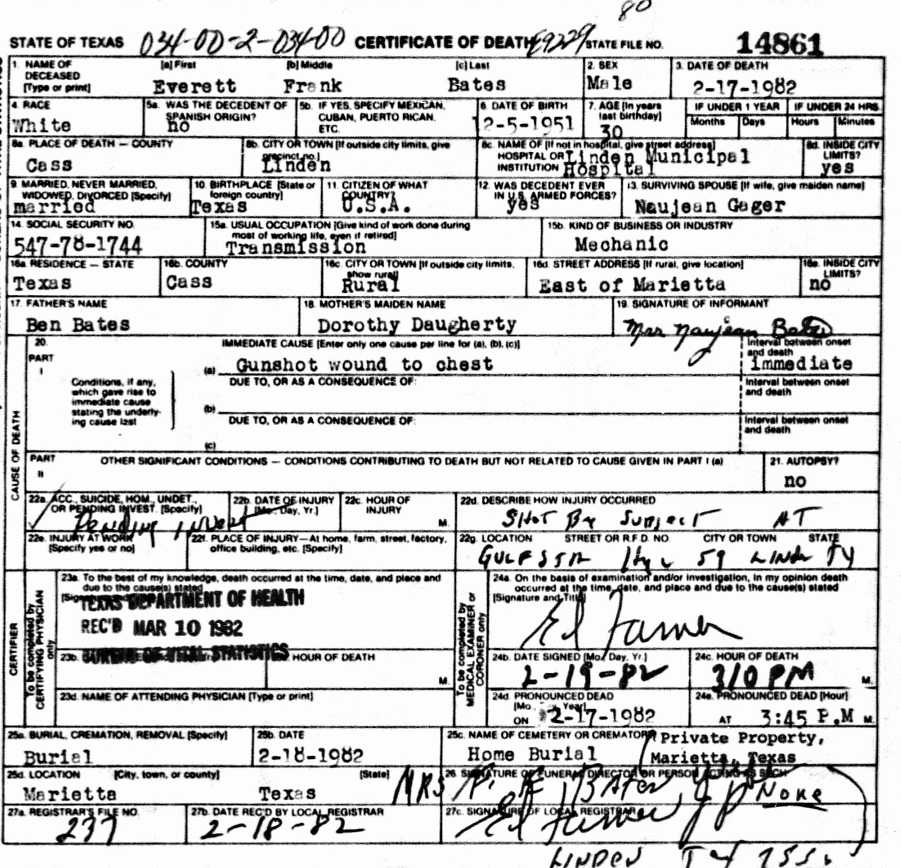 80
STATE OF TEXAS 034-00-2-034-00 CERTIFICATE OF DEATH 69229 STATE FILE NO. 14861
1. NAME OF DECEASED [Type or print] [a] First Everett [b] Middle Frank [c] Last Bates 2. SEX Male 3. DATE OF DEATH 2-17-1982
4. RACE White 5a. WAS THE DECEDENT OF SPANISH ORIGIN? no 5b. IF YES, SPECIFY MEXICAN, CUBAN, PUERTO RICAN. ETC. 6. DATE OF BIRTH 12-5-1951 7. AGE [In years last birthday] 30 IF UNDER 1 YEAR Months Days IF UNDER 24 HRS. Hours Minutes
8a. PLACE OF DEATH — COUNTY Cass 8b. CITY OR TOWN [If outside city limits, give precinct no.] Linden 8c. NAME OF [If not in hospital, give street address] HOSPITAL OR INSTITUTION Linden Municipal Hospital 8d. INSIDE CITY LIMITS? yes
9. MARRIED, NEVER MARRIED, WIDOWED, DIVORCED [Specify] married 10. BIRTHPLACE [State or foreign country] Texas 11. CITIZEN OF WHAT COUNTRY? U.S.A. 12. WAS DECEDENT EVER IN U.S. ARMED FORCES? yes 13. SURVIVING SPOUSE [If wife, give maiden name] Naujean Gager
14. SOCIAL SECURITY NO. 547-78-1744 15a. USUAL OCCUPATION [Give kind of work done during most of working life, even if retired] Transmission 15b. KIND OF BUSINESS OR INDUSTRY Mechanic
16a. RESIDENCE — STATE Texas 16b. COUNTY Cass 16c. CITY OR TOWN [If outside city limits, show rural] Rural 16d. STREET ADDRESS [If rural, give location] East of Marietta 16e. INSIDE CITY LIMITS? no
17. FATHER'S NAME Ben Bates 18. MOTHER'S MAIDEN NAME Dorothy Daugherty 19. SIGNATURE OF INFORMANT Mrs Naujean Bates
CAUSE OF DEATH
20. PART I IMMEDIATE CAUSE [Enter only one cause per line for (a), (b), (c)] Interval between onset and death
(a) Gunshot wound to chest immediate
Conditions, if any, which gave rise to immediate cause stating the underlying cause last
DUE TO, OR AS A CONSEQUENCE OF: Interval between onset and death
(b)
DUE TO, OR AS A CONSEQUENCE OF: Interval between onset and death
(c)
PART II OTHER SIGNIFICANT CONDITIONS — CONDITIONS CONTRIBUTING TO DEATH BUT NOT RELATED TO CAUSE GIVEN IN PART I (a) 21. AUTOPSY? no
22a. ACC., SUICIDE, HOM., UNDET., OR PENDING INVEST. [Specify] Pending Invest 22b. DATE OF INJURY [Mo., Day, Yr.] 22c. HOUR OF INJURY M. 22d. DESCRIBE HOW INJURY OCCURRED SHOT By Subject AT
22e. INJURY AT WORK [Specify yes or no] 22f. PLACE OF INJURY—At home, farm, street, factory, office building, etc. [Specify] 22g. LOCATION STREET OR R.F.D. NO. CITY OR TOWN STATE GULF STA Hyc 59 LINDEN TX
CERTIFIER
To be completed by CERTIFYING PHYSICIAN only
23a. To the best of my knowledge, death occurred at the time, date, and place and due to the cause(s) stated
TEXAS DEPARTMENT OF HEALTH
REC'D MAR 10 1982
BUREAU OF VITAL STATISTICS
23b. HOUR OF DEATH M.
23d. NAME OF ATTENDING PHYSICIAN [Type or print]
To be completed by MEDICAL EXAMINER or CORONER only
24a. On the basis of examination and/or investigation, in my opinion death occurred at the time, date, and place and due to the cause(s) stated
[Signature and Title]
Ed Farner
24b. DATE SIGNED [Mo., Day, Yr.] 2-19-82 24c. HOUR OF DEATH 310 PM M.
24d. PRONOUNCED DEAD [Mo., Year] ON 2-17-1982 24e. PRONOUNCED DEAD [Hour] AT 3:45 P.M M.
25a. BURIAL, CREMATION, REMOVAL [Specify] Burial 25b. DATE 2-18-1982 25c. NAME OF CEMETERY OR CREMATORY Home Burial Private Property, Marietta, Texas
25d. LOCATION [City, town, or county] Marietta [State] Texas 26. SIGNATURE OF FUNERAL DIRECTOR OR PERSON ACTING AS SUCH MRS Bates None
27a. REGISTRAR'S FILE NO. 237 27b. DATE REC'D BY LOCAL REGISTRAR 2-18-82 27c. SIGNATURE OF LOCAL REGISTRAR Ed Farner JP
LINDEN